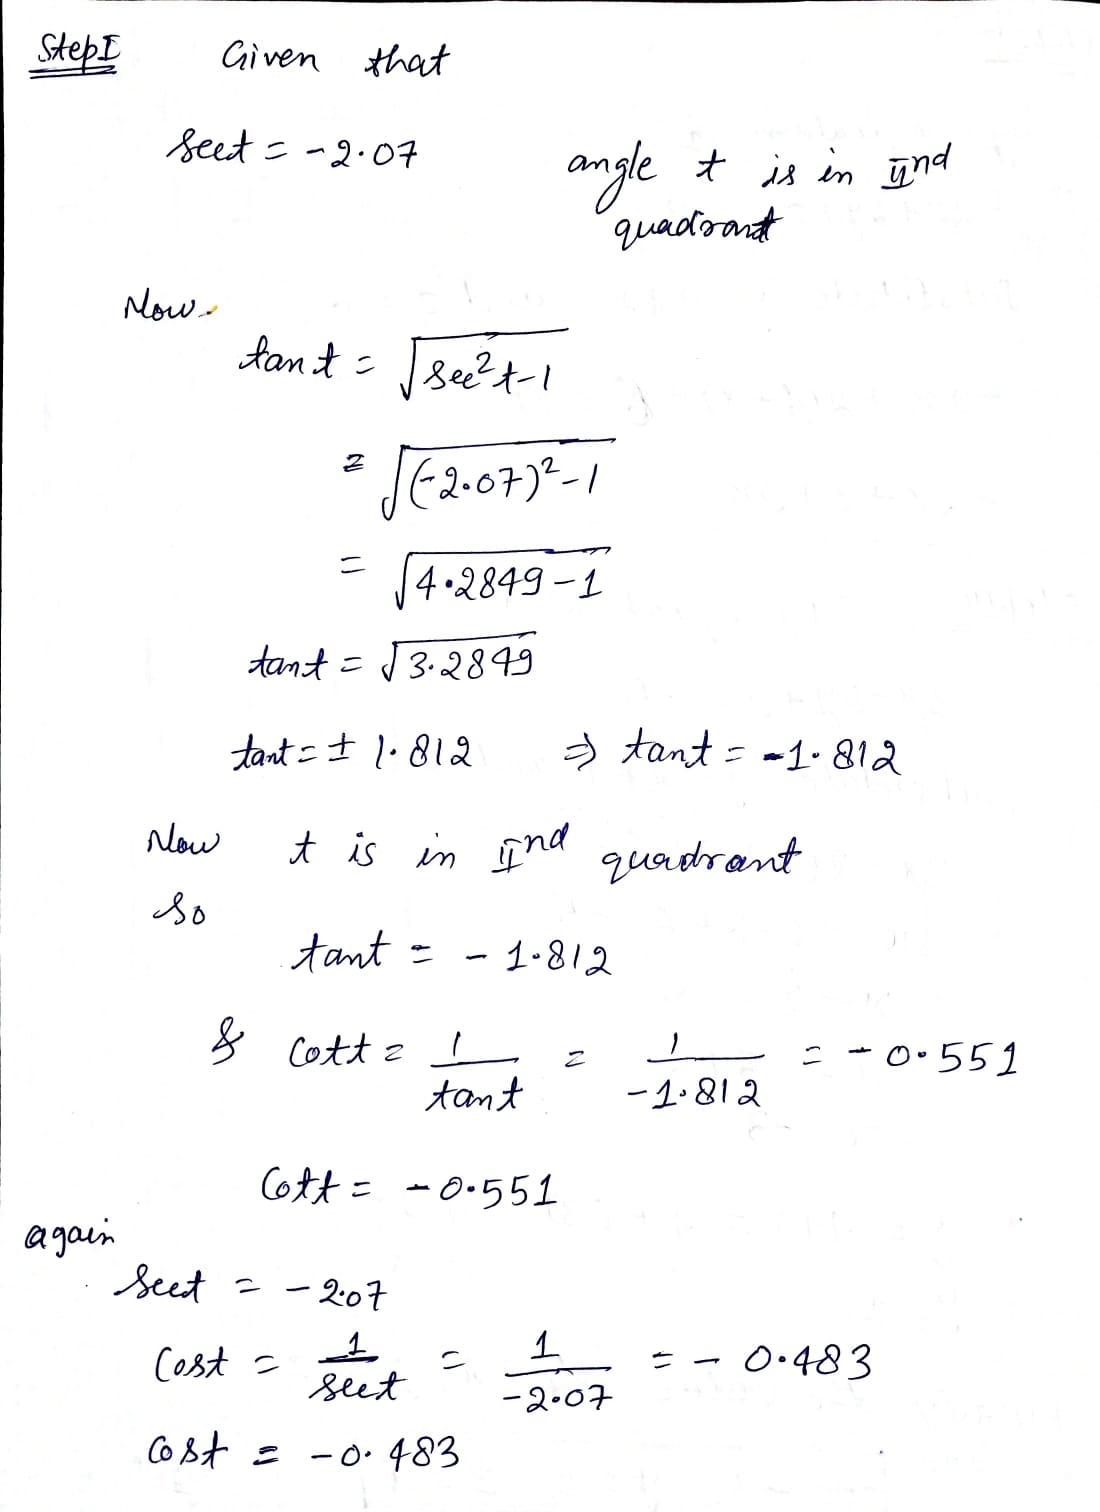 Step I Given that
sect = -2.07 angle t is in IInd
quadrant
Now
tan t = √(sec²t-1)
= √((-2.07)²-1)
= √(4.2849-1)
tant = √3.2849
tant = ± 1.812 ⇒ tant = -1.812
Now t is in IInd quadrant
So
tant = - 1.812
& Cott = 1/tant = 1/-1.812 = -0.551
Cott = -0.551
again
Sect = -2.07
Cost = 1/sect = 1/-2.07 = - 0.483
Cost = -0.483